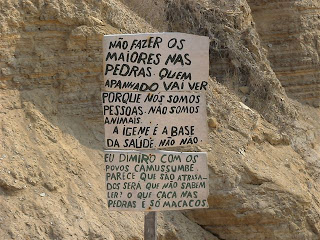 NÃO FAZER OS
MAIORES NAS
PEDRAS. QUEM
APANHADO VAI VER
PORQUE NOS SOMOS
PESSOAS. NÃO SOMOS
ANIMAIS...
A IGENE É A BASE
DA SAÚDE. NÃO NÃO.
EU DIMIRO COM OS
POVOS CAMUSSUMBÉ.
PARECE QUE SÃO ATRASA..
DOS SERA QUE NÃO SABEM
LER? O QUE CAGA NAS
PEDRAS E SÓ MACACOS